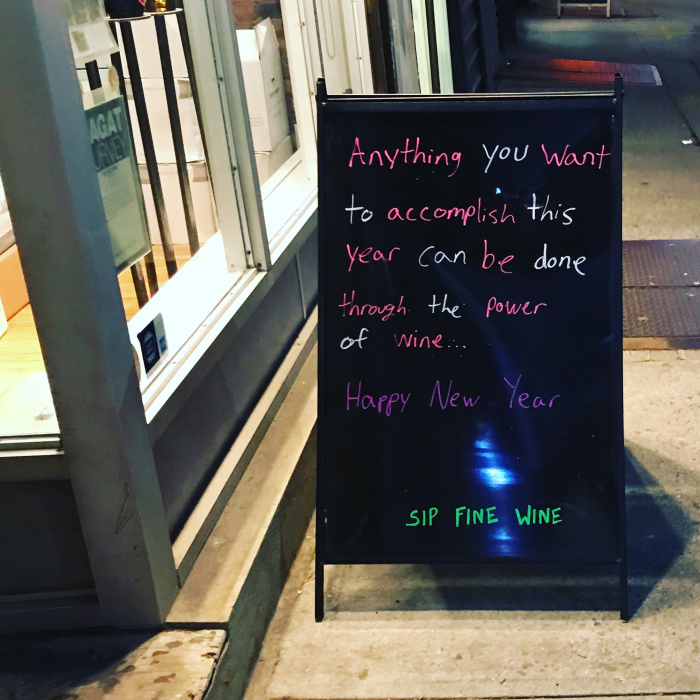 Anything you want
to accomplish this
year can be done
through the power
of wine...
Happy New Year
SIP FINE WINE
AGAT